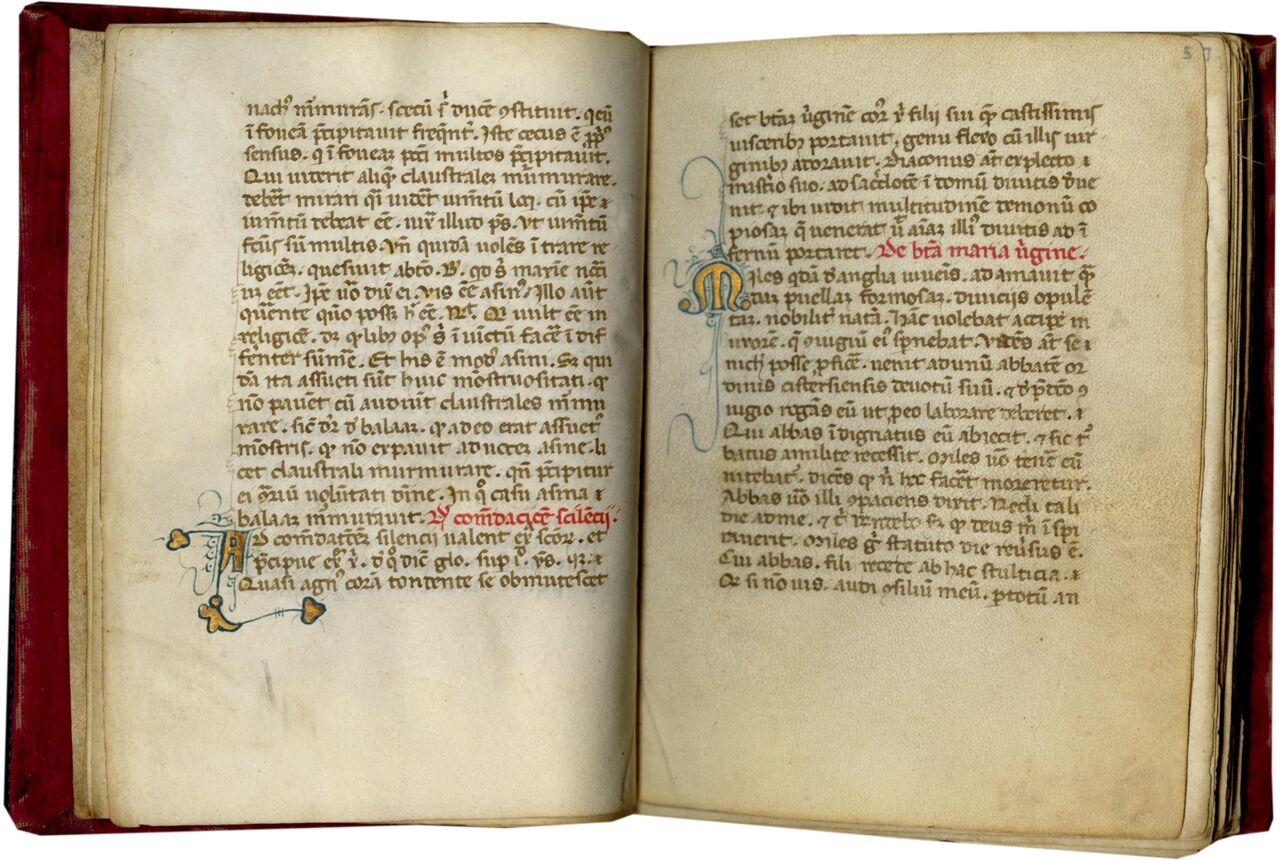 nachꝰ m̄murās. scecū ī ducē ꝯstituit. qcū
ī foueā p̄cipitauit freqn̄t. Iste cecus ē ppꝰ
sensus. q ī foueaꝫ pcc̄i multos p̄cipitauit.
Qui uiderit aliqꝫ claustraleꝫ murmurare.
debet mirari qͣ uidet um̄tū loq. cū ipe ⁊
um̄tū debeat eē. iuꝫ illud ps. Vt um̄tū
fcūs sū multis. Vn̄ quidā volēs ītrare re
ligiōeꝫ. quesiuit abtō. B. qd s̄ marie
eēt. Ipe ūo dix ei. vis eē asinꝰ. Illo aūt
querente quō possꝫ h eē. Rn̄. Qͥ uult eē in
religiōe. dꝫ qͥlibꝫ opꝰ s̄ iniūctū facē īdif
ferenter sūmē. Et his ē modꝰ asini. Sꝫ qui
dā ita assueti sūt huic mōstruositati. qͥ
nō pauent cū audiūt claustrales m̄mu
rare. sic d̄r d̄ balaaꝫ. qͥ adeo erat assuetꝰ
mōstris. qͥ nō expauit ad uoceꝫ asine. li
cet claustrali murmurare. qn̄ p̄cipitur
ei ꝯrariū uolūtati dīne. In qͦ casu asina ⁊
balaaꝫ m̄murauit. Ad com̄dacioē scilēcij.
AD com̄datōꝫ silencij valent exͣ scōꝝ. et
p̄cipue exͣ x̄. d̄ qͦ dic̄ glo. sup iͦ. ys. ⁊
Quasi agnꝰ corā tondente se obmutescet
57
set btāꝫ ūginē corꝰ x̄ filij sui qͥ castissimis
uisceribꝫ portauit. genu flexo cū illis uir
ginibꝫ adorauit. Diaconus at̄ expleto
mist̄io suo. ad sac̄dotē ī domū diuitis deue
nit. ⁊ ibi uidit multitudinē demonū co
piosaꝫ q̄ uenerat ut aīaꝫ illiꝰ diuitis ad ī
fernū portaret. De btā maria ūgine.
MIles qdā d̄ anglia iuuenis. adamauit qͣ
daꝫ puellaꝫ formosaꝫ. diuicijs opulē
taꝫ. nobilit̄ natā. Hāc volebat accipe in
uxorē. qͥ ꝯiugiū eiꝰ spnebat. Vidēs at̄ se
nich̄ posse pficē. venit ad unū abbatē or
dinis cisterciensis deuotū suū. ⁊ d̄ p̄dcō ꝯ
iugio rogās eū ut peo laborare deberet.
Qui abbas īdignatus eū abiecit. ⁊ sic t̄
batus a milite recessit. Miles ūo tenēs eū
nitebat̄. dicēs qͥ n̄ hoc facēt moreretur.
Abbas ūo illi ꝯpaciens dixit. Redi tali
die ad me. ⁊ t̄ rn̄debo sꝫ qͥ deus m̄ īspi
rauerit. Miles gͦ statuto die reūsus ē.
Cui abbas. fili recede ab hac stulticia.
Qͥ si nō vis. audi ꝯsiliū meū. p totū an